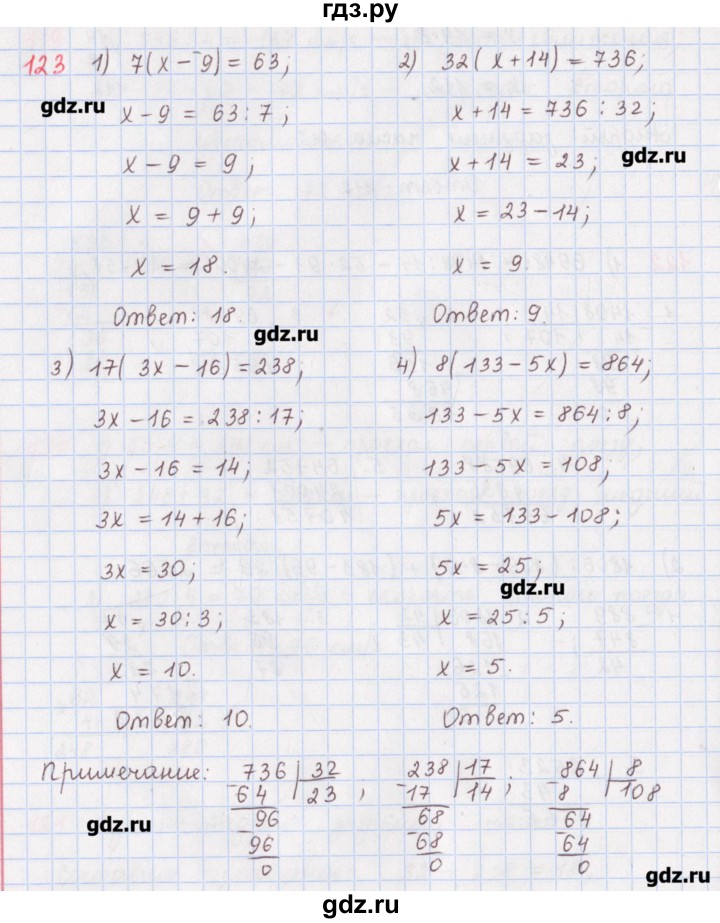 гдз.ру
123 1) 7(x - 9) = 63;
x - 9 = 63 : 7;
x - 9 = 9;
x = 9 + 9;
x = 18.
Ответ: 18.
2) 32(x + 14) = 736;
x + 14 = 736 : 32;
x + 14 = 23;
x = 23 - 14;
x = 9
Ответ: 9.
3) 17(3x - 16) = 238;
3x - 16 = 238 : 17;
3x - 16 = 14;
3x = 14 + 16;
3x = 30;
x = 30 : 3;
x = 10.
Ответ: 10.
4) 8(133 - 5x) = 864;
133 - 5x = 864 : 8;
133 - 5x = 108;
5x = 133 - 108;
5x = 25;
x = 25 : 5;
x = 5.
Ответ: 5.
Примечание: 736 | 32
-64 | 23
-96
96
0
;
238 | 17
-17 | 14
-68
68
0
;
-864 | 8
8 | 108
-64
64
0
gdz.ru
gdz.ru
gdz.ru
gdz.ru
gdz.ru
gdz.ru